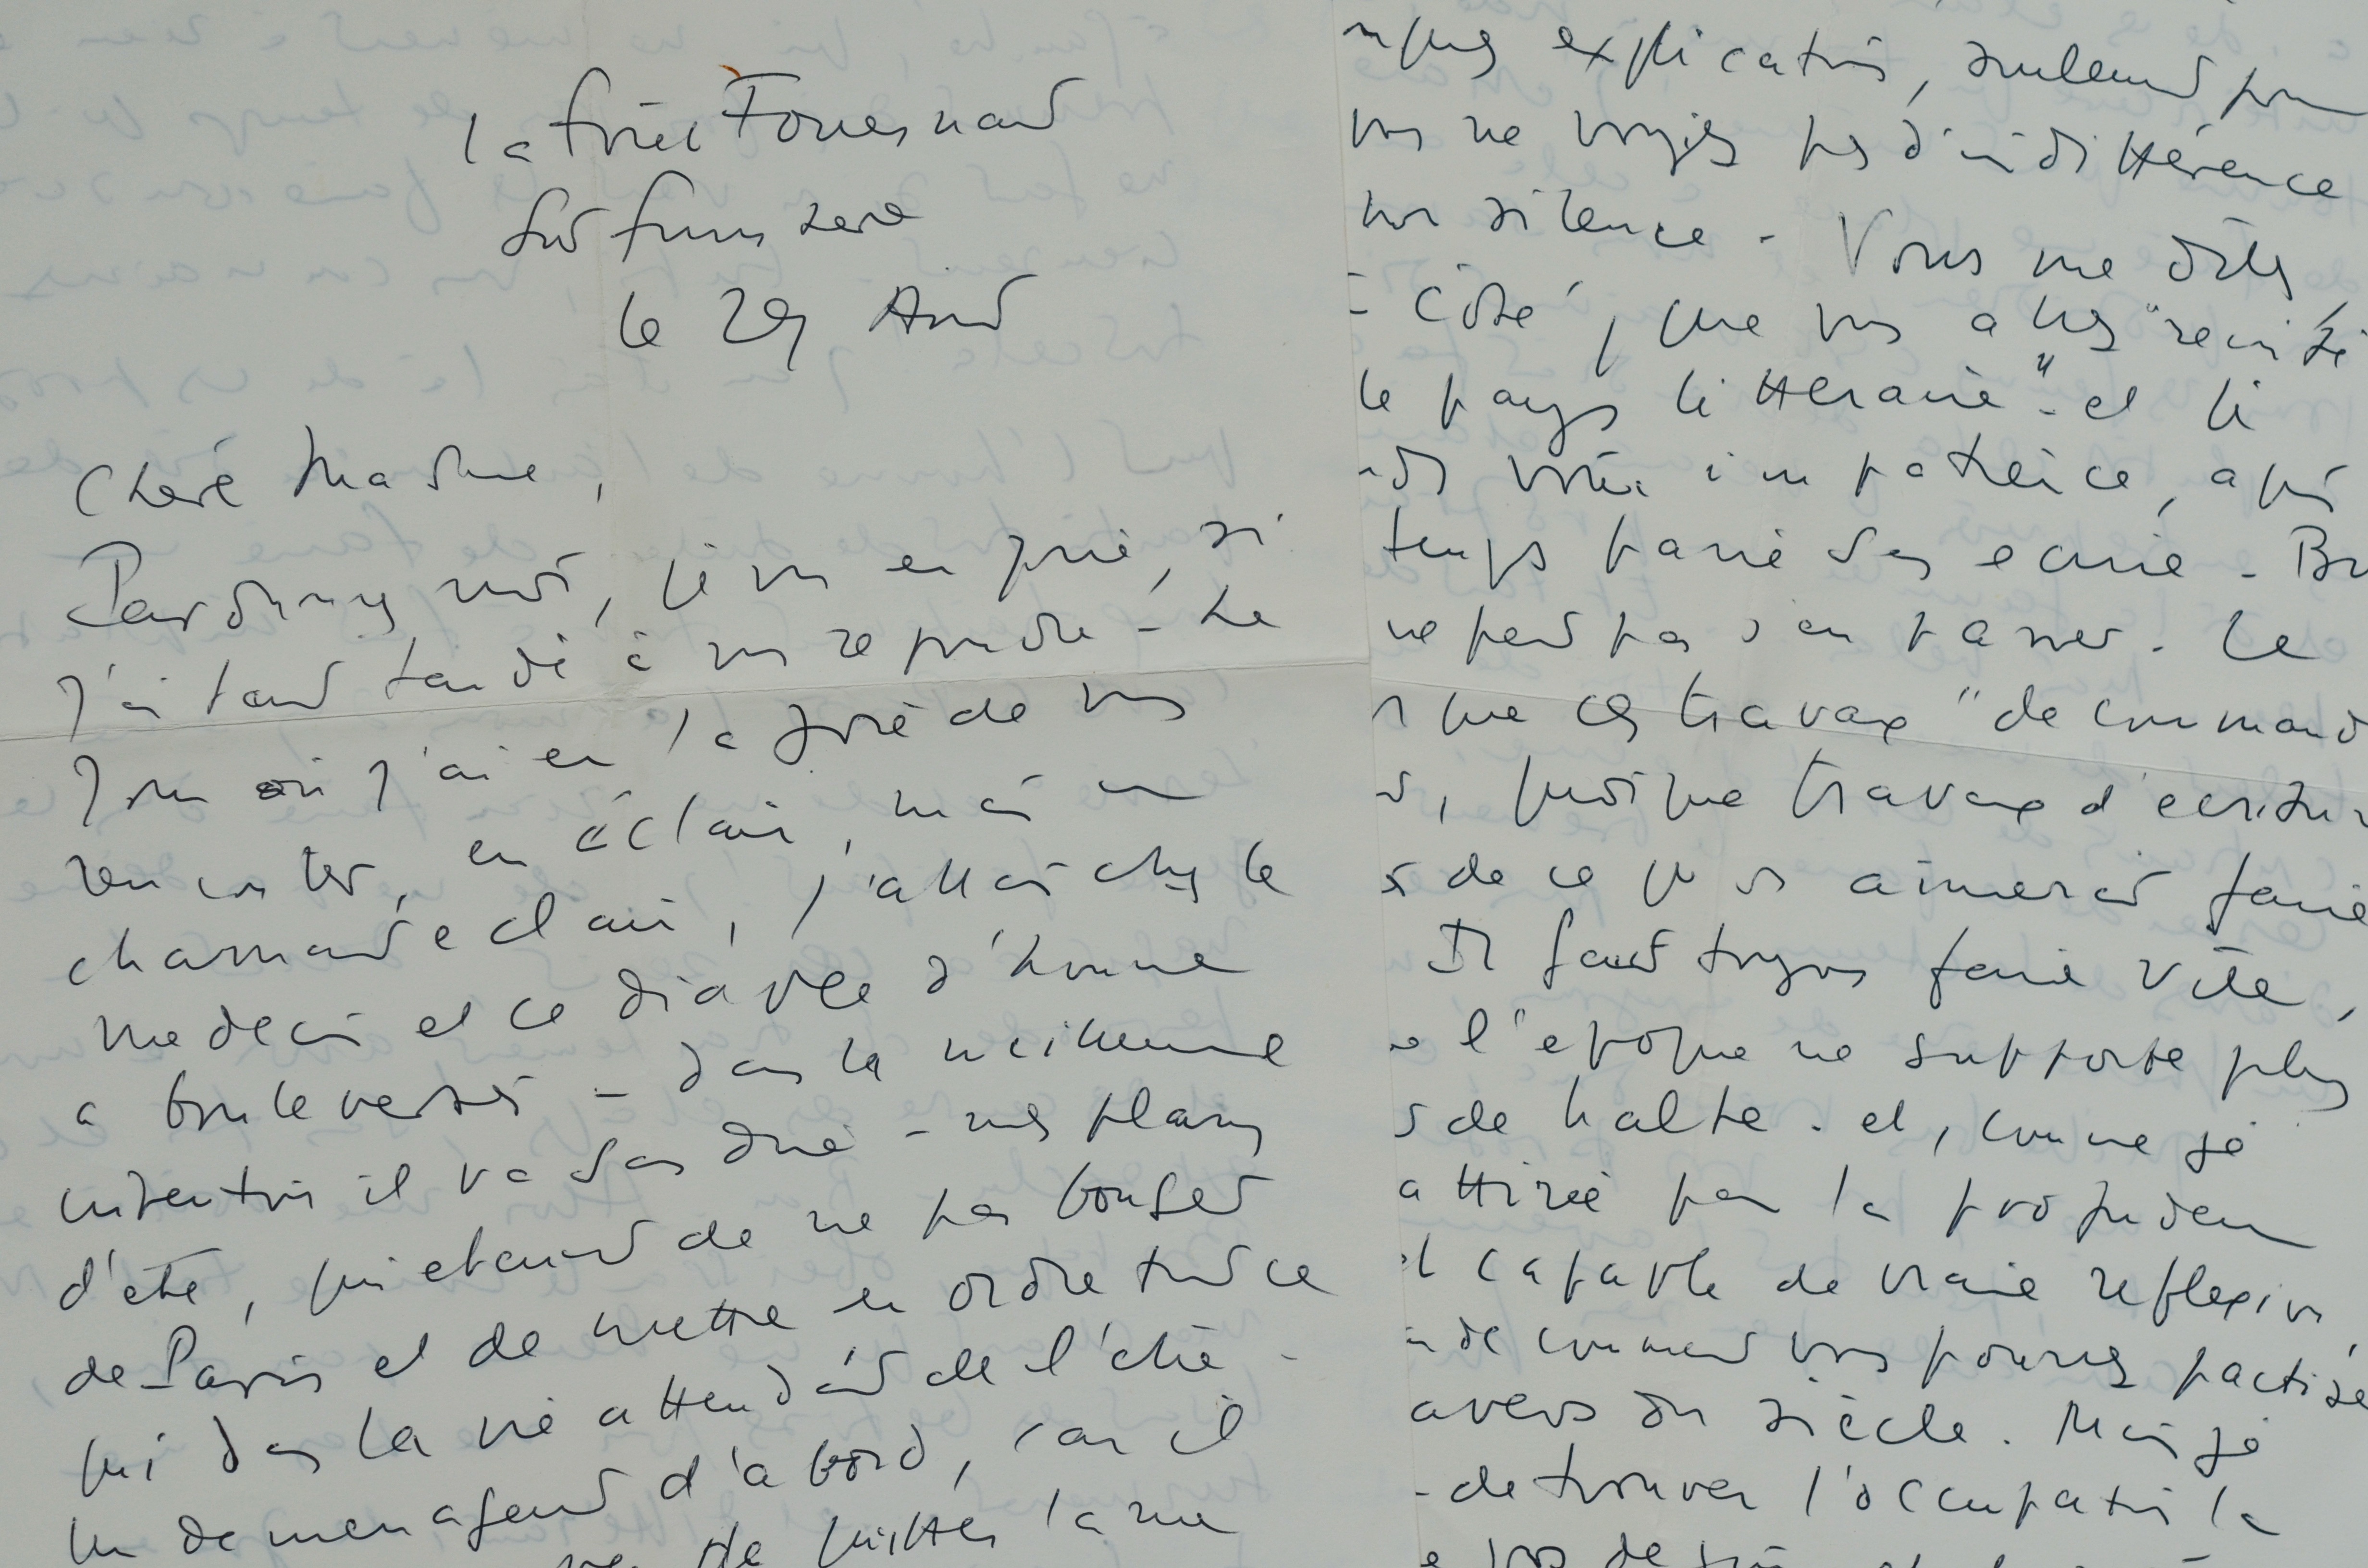 la Forêt Fouesnant
Sud Finistère
le 29 Août
Chère Madame,
Pardonnez moi, je vous en prie, si
j'ai tant tardé à vous répondre - Le
jour où j'ai eu la joie de vous
rencontrer, en éclair, mais un
charmant éclair, j'allais chez le
médecin et ce diable d'homme
a bouleversé - dans la meilleure
intention il va sans dire - mes plans
d'été, qui étaient de ne pas bouger
de Paris et de mettre en ordre tout ce
qui dans la vie attendait de l'être -
un déménagement d'abord, car il
de quitter la rue
explications, seulement pour
vous ne voyiez pas d'indifférence
mon silence - Vous me dites,
côté, que vous avez "réinté
le pays littéraire" - et je
votre impatience, après
temps passé sans écrire - On
ne peut pas s'en passer. Le
que ces travaux "de command
, quoique travaux d'écritur
de ce qu'on aimerait faire
Il faut toujours faire vite,
l'époque ne supporte plus
de halte. et, comme je
attirée par la profondeur
et capable de vraie réflexion,
comment vous pourrez pactise
avers du siècle. Mais je
de trouver l'occupation la